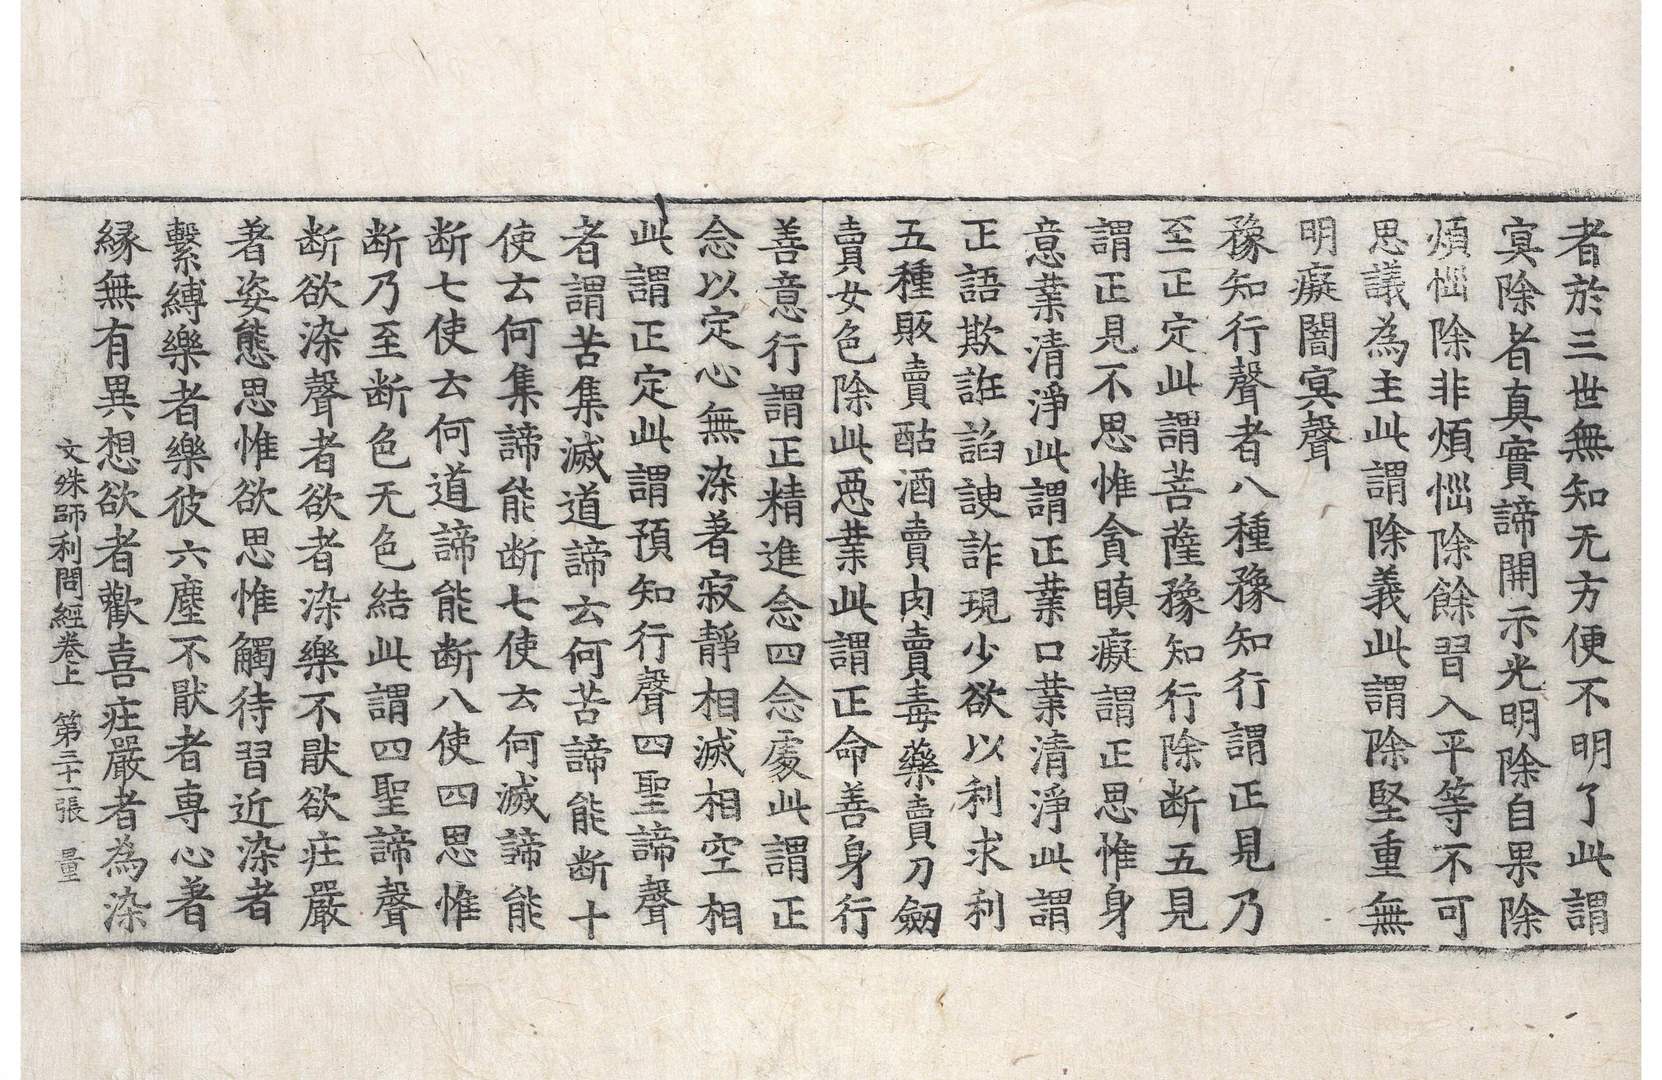 者於三世無知无方便不明了此謂
冥除者真實諦開示光明除自果除
煩惱除非煩惱除餘習入平等不可
思議為主此謂除義此謂除堅重無
明癡闇冥聲
豫知行聲者八種豫知行謂正見乃
至正定此謂菩薩豫知行除断五見
謂正見不思惟貪瞋癡謂正思惟身
意業清淨此謂正業口業清淨此謂
正語欺誑諂諛詐現少欲以利求利
五種販賣酤酒賣肉賣毒藥賣刀劒
賣女色除此惡業此謂正命善身行
善意行謂正精進念四念處此謂正
念以定心無染著寂靜相滅相空相
此謂正定此謂預知行聲四聖諦聲
者謂苦集滅道諦云何苦諦能断十
使云何集諦能断七使云何滅諦能
断七使云何道諦能断八使四思惟
断乃至断色无色結此謂四聖諦聲
断欲染聲者欲者染樂不猒欲疰嚴
著姿態思惟欲思惟觸待習近染者
繫縛樂者樂彼六塵不猒者専心著
縁無有異想欲者歡喜疰嚴者為染
文殊師利問經卷上　第三十一張　量